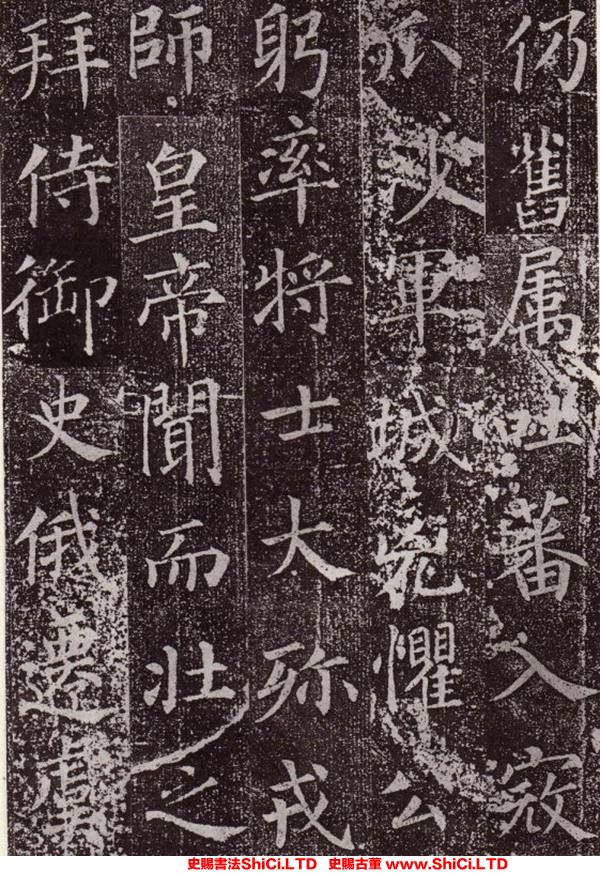 仍舊属吐蕃入寇
瓜沙軍城兇懼公
躬率将士大殄戎
師皇帝聞而壮之
拜侍御史俄遷虞
史賜書法ShiCi.LTD 史賜古董 www.ShiCi.LTD